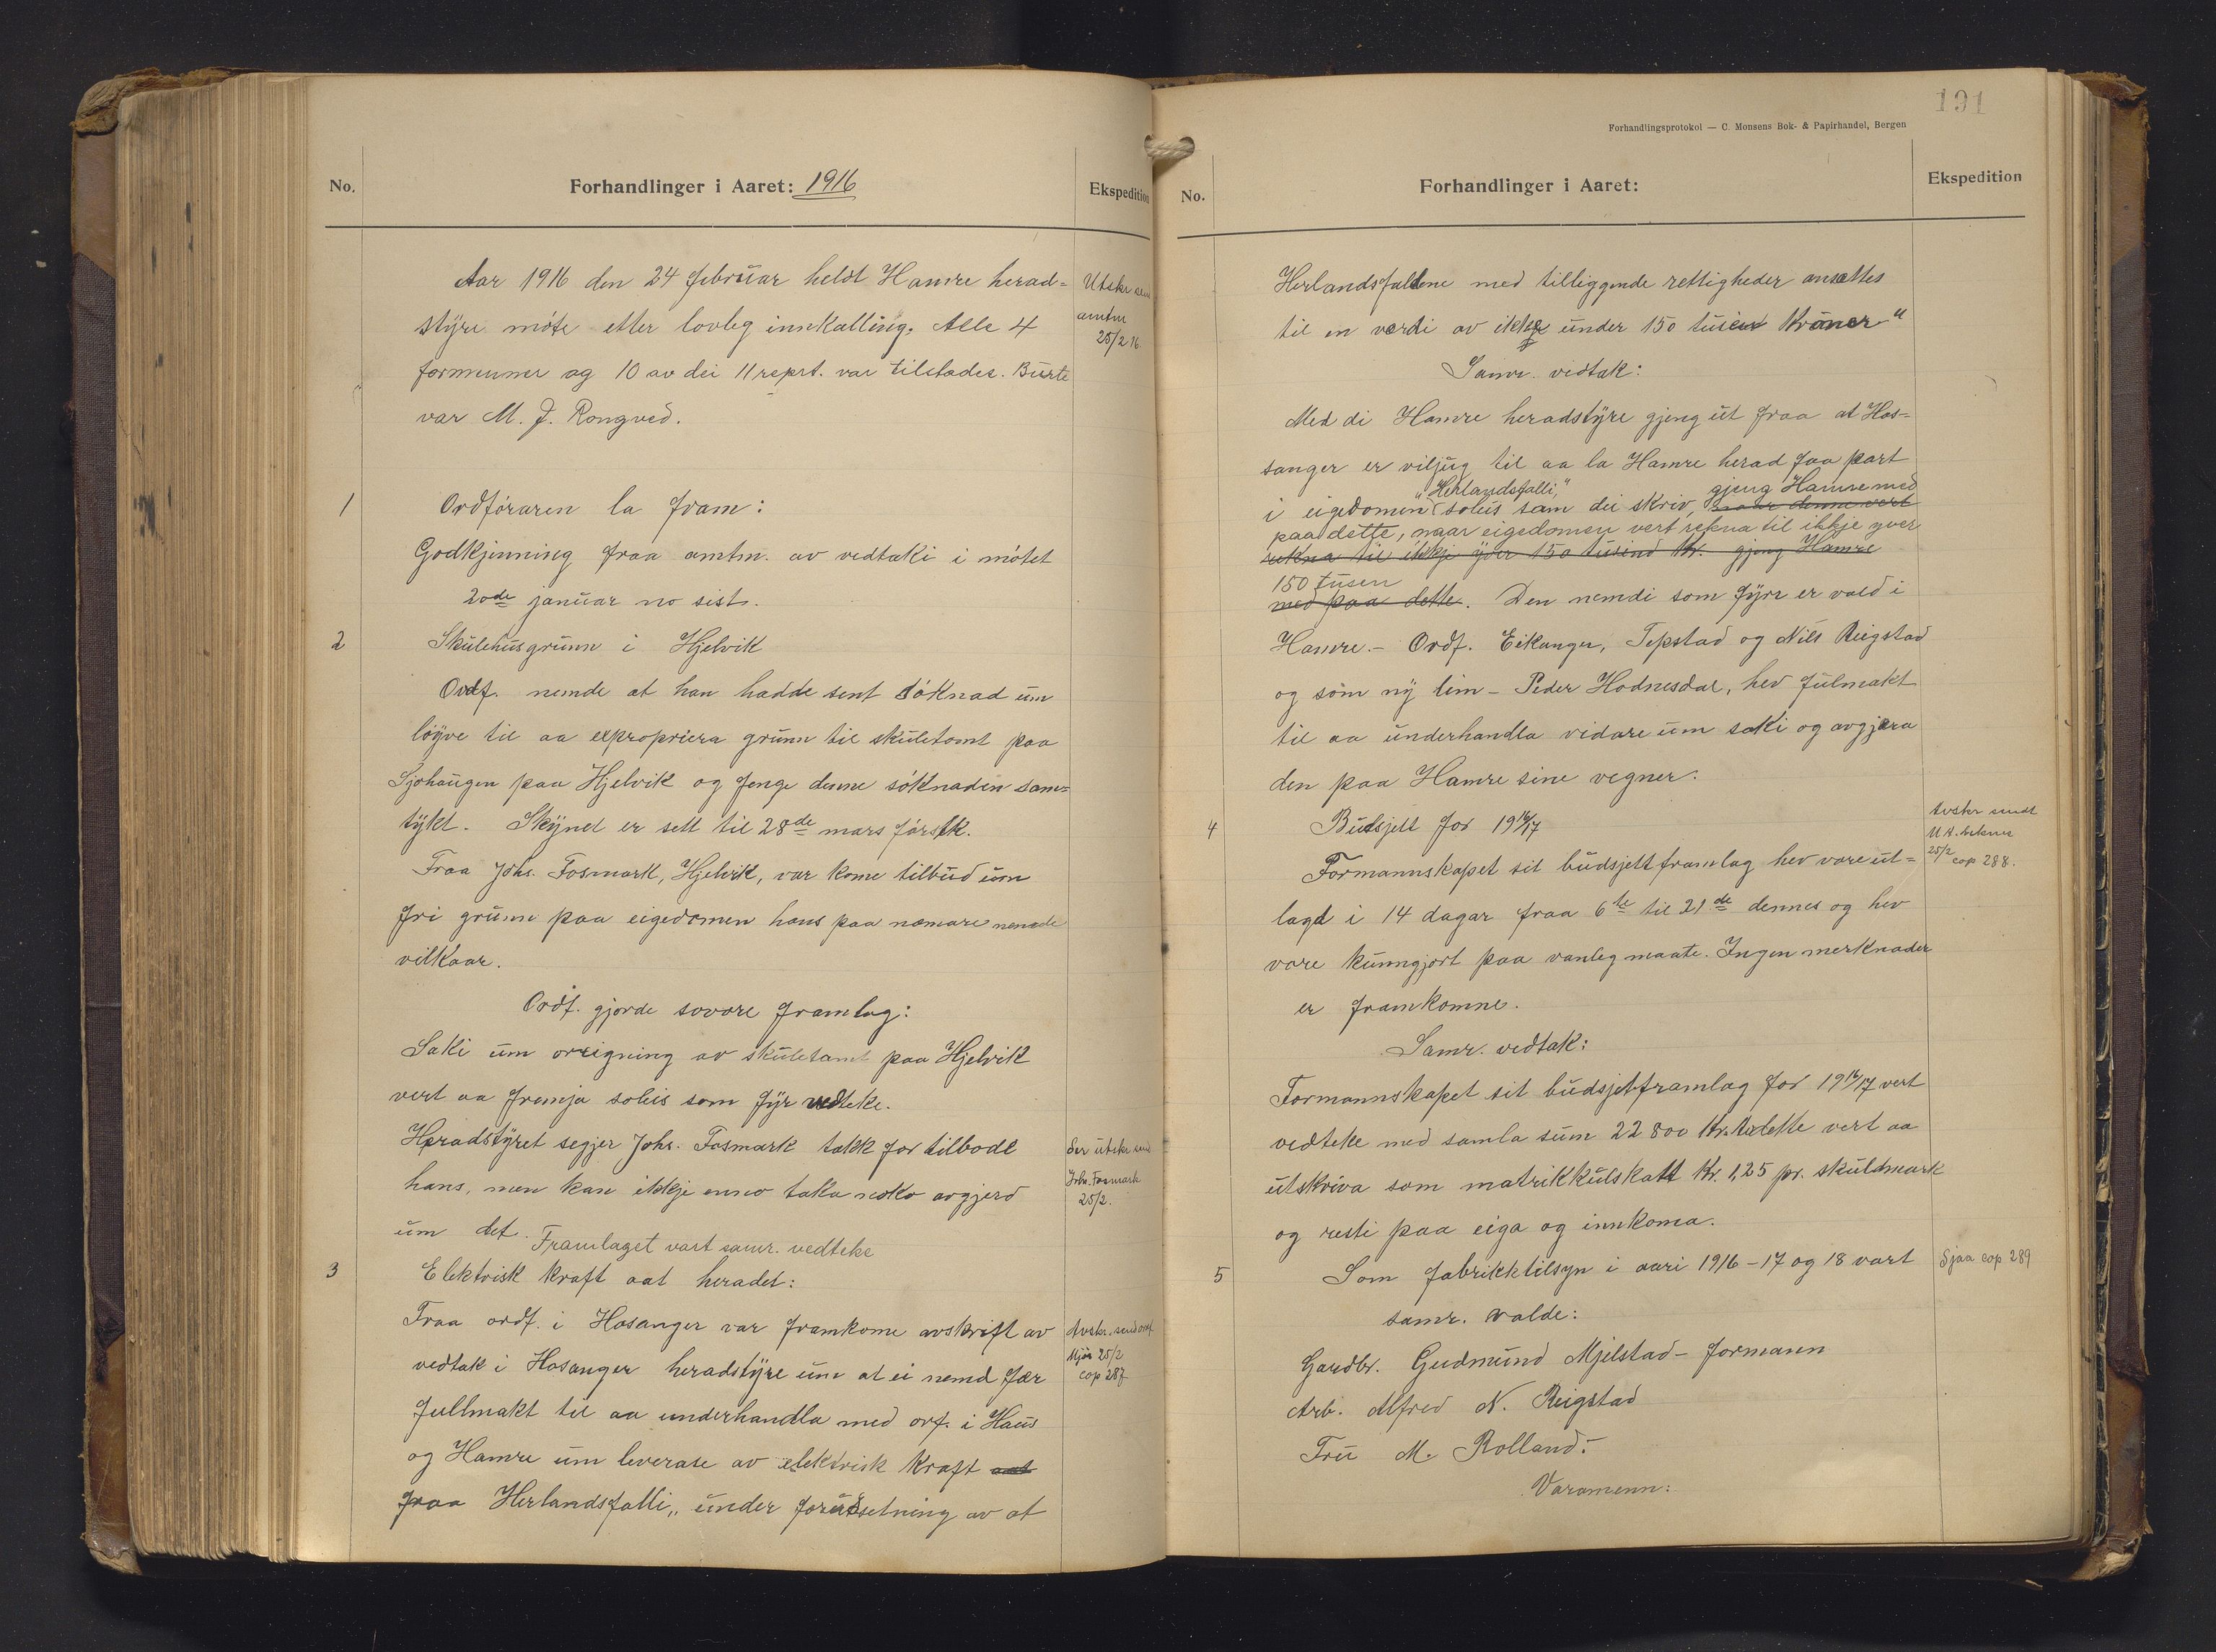 No.
Forhandlinger i Aaret: 1916
Ekspedition
Aar 1916 den 24 februar heldt Hamre herad=
styre møte etter lovleg innkalling. Alle 4
formenner og 10 av dei 11 reprt. var tilstades. Burte
var M. J. Rongved.
Utskr send
amtm
25/2 16.
1
Ordføraren la fram:
Godkjenning fraa amtm. av vedtaki i møtet
20de januar no sist.
2
Skulehusgrunn i Hjelvik
Ordf. nemde at han hadde sent søknad um
løyve til aa expropriera grunn til skuletomt paa
Sjohaugen paa Hjelvik og fenge denne søknaden sam=
tykt. Skynet er sett til 28de mars førstk.
Fraa Johs. Fosmark, Hjelvik, var kome tilbud um
fri grunn paa eigedomen hans paa næmare nemde
vilkaar.
Ordf. gjorde sovore framlag:
Saki um oreigning av skuletomt paa Hjelvik
vert aa fremja soleis som fyr vedteke.
Heradstyret segjer Johs. Fosmark takk for tilbodt
hans, men kan ikkje enno taka noko avgjerd
um det. Framlaget vart samr. vedteke
Ser utskr send
Johs. Fosmark
25/2.
3
Elektrisk kraft aat heradet:
Fraa ordf. i Hosanger var framkome avskrift av
vedtak i Hosanger heradstyre um at ei nemd fær
fullmakt til aa underhandla med orf. i Haus
og Hamre um leverase av elektrisk kraft aat
fraa Herlandsfalli,, under forutsetning av at
Avskr. send ordf.
Mjøs 25/2
cop 287
191
Forhandlingsprotokol — C. Monsens Bok- & Papirhandel, Bergen
No.
Forhandlinger i Aaret:
Ekspedition
Herlandsfaldene med tilliggende rettigheder ansættes
til en verdi av ikke under 150 tusen kroner"
Samr. vedtak:
Med di Hamre heradstyre gjeng ut fraa at Hos=
sanger er viljug til aa la Hamre herad faa part
i eigedomen "Herlandsfalli," soleis som dei skriv, gjeng Hamre med
paa dette, naar eigedomen vert rekna til ikkje yver
rekna til ikkje yver 150 tusend kr. gjeng Hamre
150 tusen
med paa dette. Den nemdi som fyrr er vald i
Hamre.- Ordf. Eikanger, Tepstad og Nils Reigstad
og som ny lim - Peder Hodnesdal, hev fulmakt
til aa underhandla vidare um saki og avgjera
den paa Hamre sine vegner.
4
Budsjett for 1916/17
Formannskapet sit budsjettframlag hev vore ut=
lagd i 14 dagar fraa 6te til 21de dennes og hev
vore kunngjort paa vanleg maate. Ingen merknader
er framkomne.
Avskr sendt
25/2 cop 288.
Samr. vedtak:
Formannskapet sit budsjettframlag for 1916/17 vert
vedteke med samla sum 22800 kr. Av dette vert aa
utskriva som matrikkulskatt kr. 1,25 pr. skuldmark
og resti paa eiga og innkoma.
5
Som fabrikktilsyn i aari 1916-17 og 18 vart
samr. valde:
Sjaa cop 289
Gardbr. Gudmund Mjelstad - formann
Arb. Alfred N. Reigstad
Fru M. Rolland.-
Varamenn: